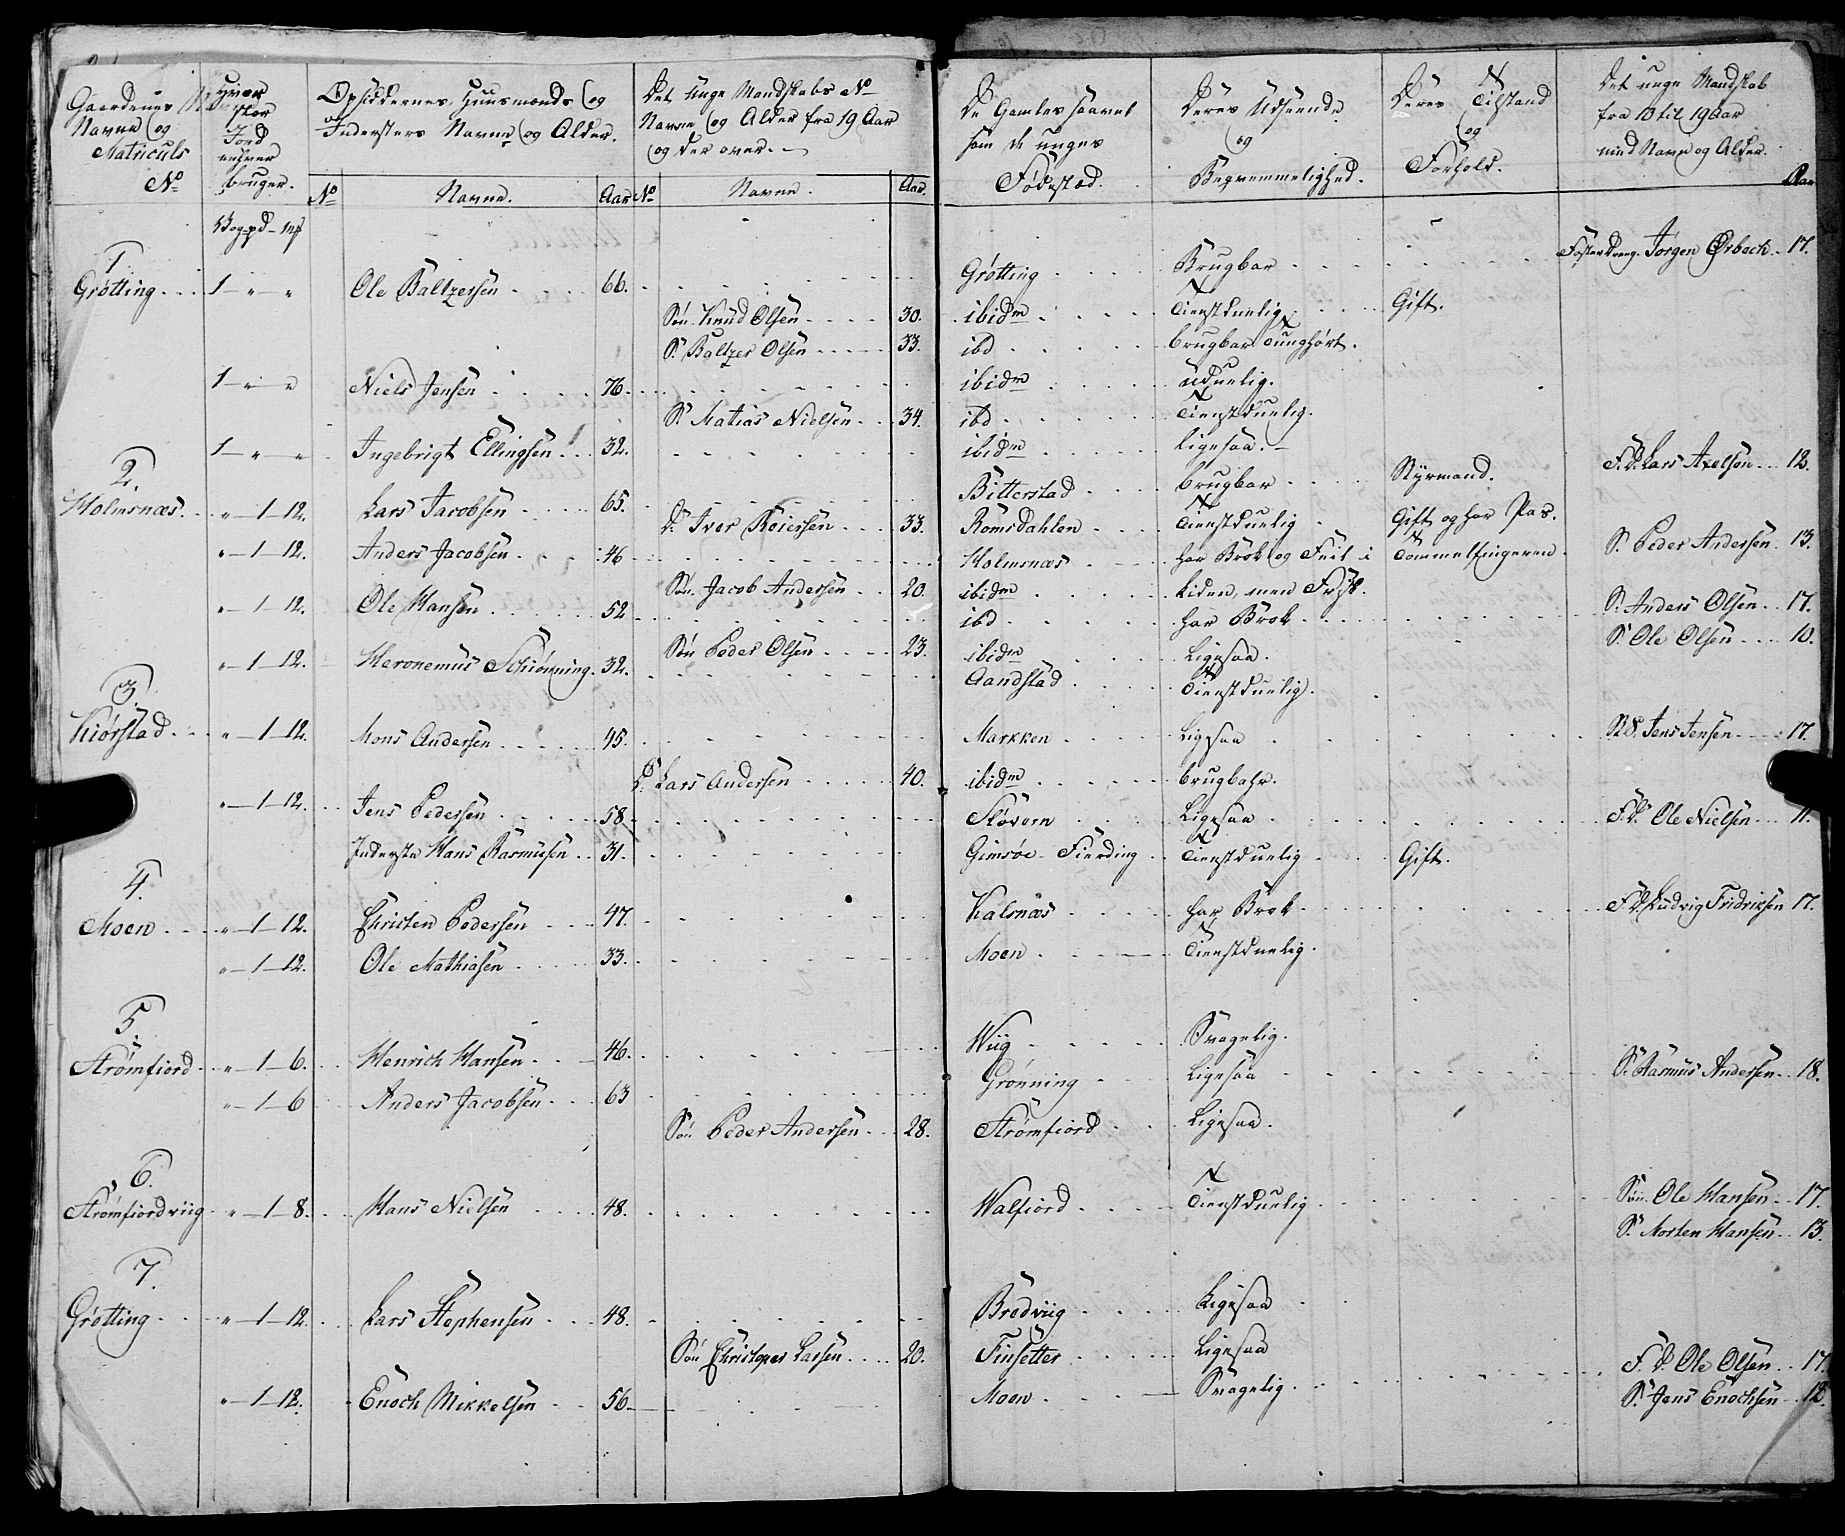 Gaardenes Navne og Matriculs No
Hvor stor Jord enhver bruger.
Opsiddernes, Huusmænds og Indersters Navne og Alder.
Det unge Mandskabs No Navne og Alder fra 19 Aar og der over.
De Gamles saavel som de unges Fødested.
Deres Udseende og Beqvemmelighed.
Deres Tilstand og Forhold.
Det unge Mandskab fra 10 til 19 Aar med Navn og Alder.
No Navne. Aar No Navne. Aar. Aar
Vog - pd - mk
Fosterdreng. Jørgen Ørbech 17.
1.
Grøtting 1 " " Ole Baltzersen 66. Grøtting Brugbar
Søn Knud Olsen 30. ibidm Tienstduelig Gift.
S. Baltzer Olsen 33. ibd brugbar Tunghørt.
1 " " Niels Jensen 76. ibidm uduelig.
S. Matias Nielsen 34. ibd Tienstduelig.
1 " " Ingebrigt Ellingsen 32. ibidm Ligesaa. F.D. Lars Axelsen 12.
2.
Holmsnæs " 1 12. Lars Jacobsen 65. Bitterstad brugbar Styrmand.
D. Iver Roiersen 33. Romsdahlen Tienstduelig Gift og har Pas.
" 1 12. Anders Jacobsen 46 Holmsnæs har Brok og Feil i Tommelfingeren S. Peder Andersen 13.
Søn Jacob Andersen 20. ibidm Liden, men Frisk.
" 1 12. Ole Hansen 52 ibd har Brok S. Anders Olsen 17.
Søn Peder Olsen 23. ibidm Ligesaa. S. Ole Olsen 10.
" 1 12. Heronemus Schiønning 32. Aandstad Tienstduelig.
3.
Kiørstad " 1 12. Mons Andersen 45. Markken Ligesaa St.S. Jens Jensen 17.
D. Lars Andersen 40. ibidm brugbahr.
" 1 12. Jens Pedersen 58 Sløveren Ligesaa F.D. Ole Nielsen 11.
Inderste Hans Rasmusen 31. Gimsøe Fierding Tienstduelig Gift.
4.
Moen " 1 12. Christen Pedersen 47. Kalsnæs har Brok F.D. Ludvig Fridriksen 17.
" 1 12. Ole Mathiasen 33. Moen Tienstduelig.
5.
Strømfiord " 1 6. Henrich Hansen 46. Wiig Svagelig.
" 1 6 Anders Jacobsen 63 Grønning Ligesaa S. Rasmus Andersen 18.
Søn Peder Andersen 28. Strømfiord Ligesaa.
6.
Strømfiordviig " 1 8. Hans Nielsen 48. Walfiord Tienstduelig Søn Ole Hansen 17.
S. Morten Hansen 13.
7.
Grøtting " 1 12. Lars Stephensen 48. Bredviig Ligesaa
Søn Christoper Larsen 20. Finsetter Ligesaa F.D. Ole Olsen 17.
" 1 12. Enoch Mikkelsen 56 Moen Svagelig. S. Jens Enochsen 12.